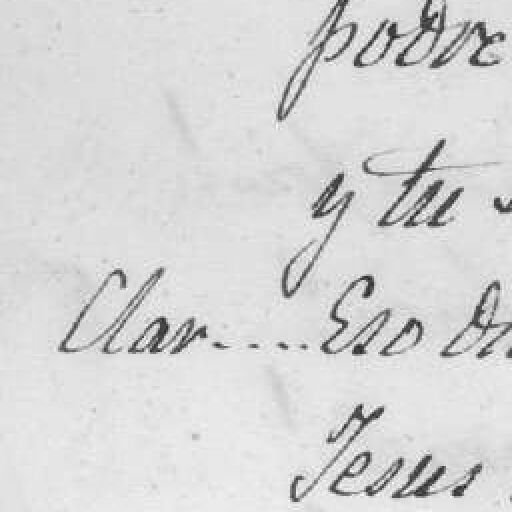 podre
y tu
Clar.....Eso
Jesus